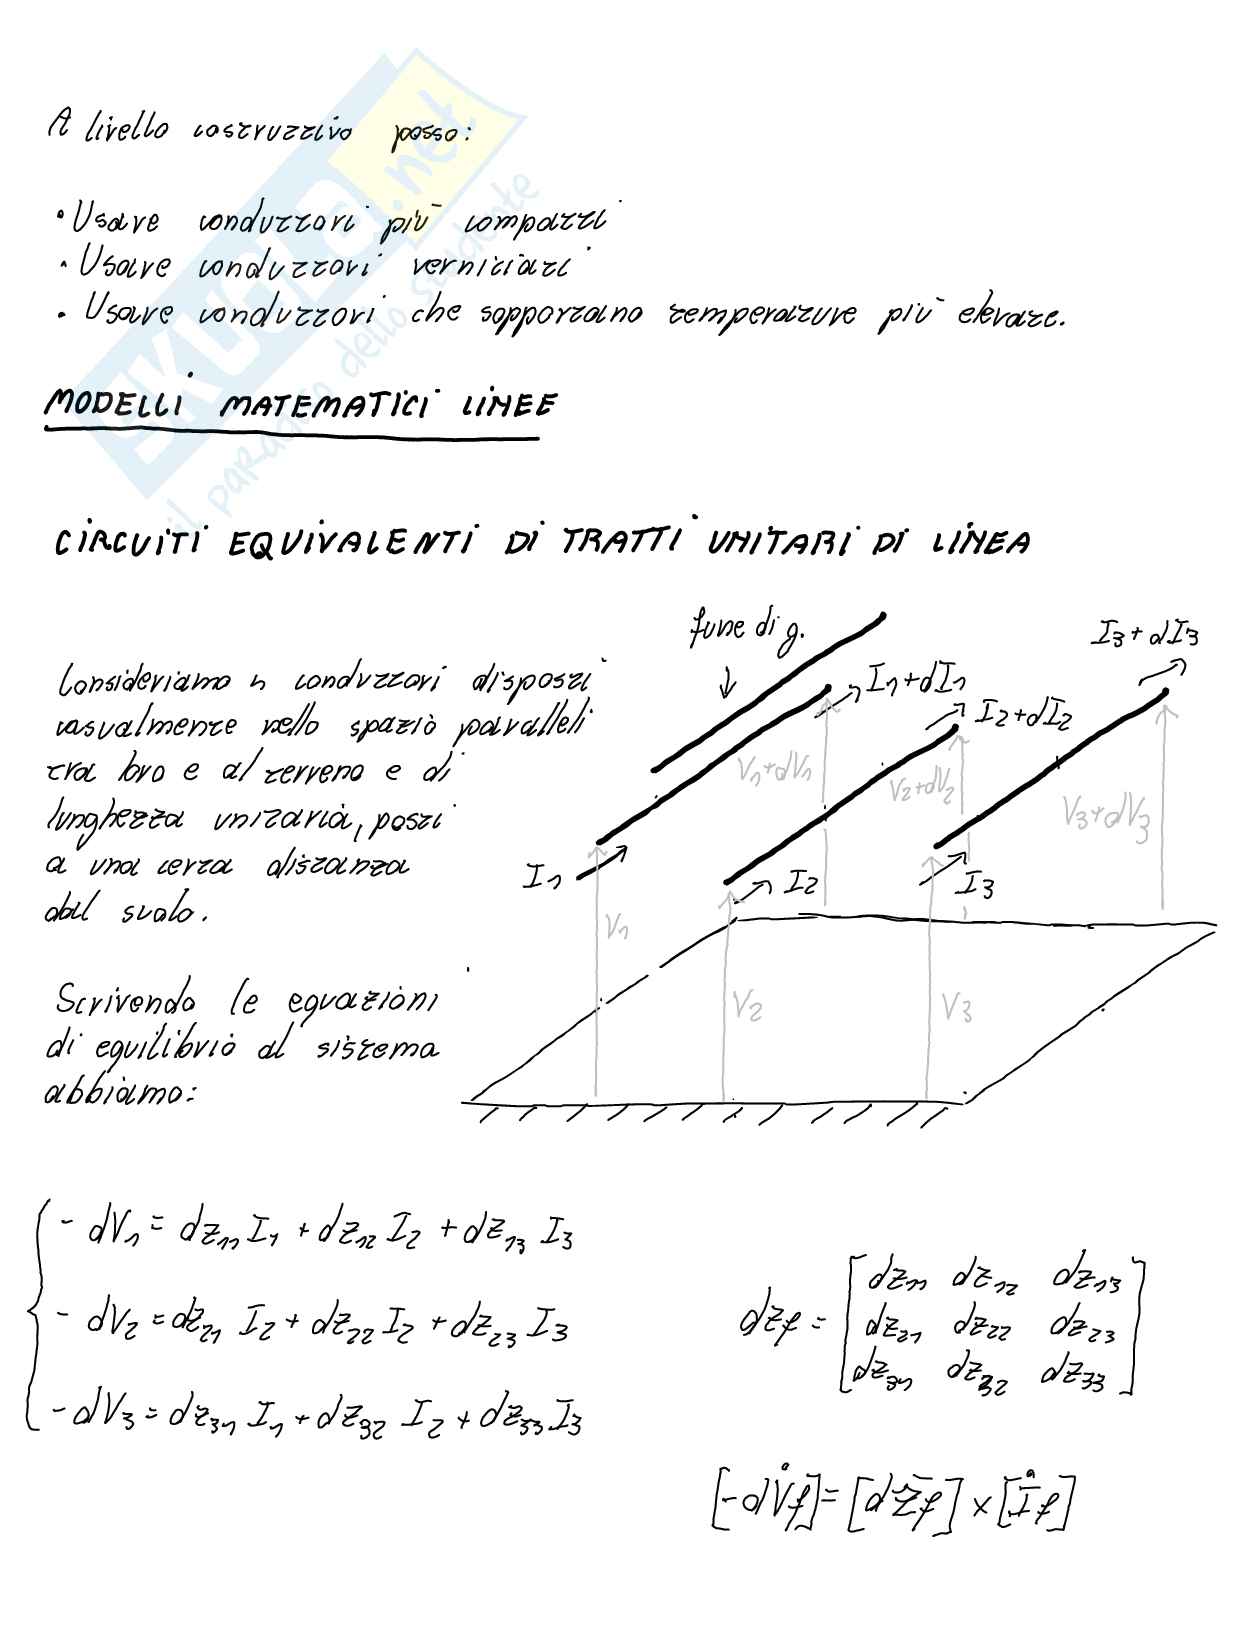 SKUOLA.net
il paradiso dello studente
A livello costruttivo posso:
• Usare conduttori più compatti
• Usare conduttori verniciati
• Usare conduttori che sopportano temperature più elevate.
MODELLI MATEMATICI LINEE
CIRCUITI EQUIVALENTI DI TRATTI UNITARI DI LINEA
Consideriamo n conduttori disposti
casualmente nello spazio paralleli
tra loro e al terreno e di
lunghezza unitaria, posti
a una certa distanza
dal suolo.
fune di g.
I1+dI1
I2+dI2
I3+dI3
V1+dV1
V2+dV2
V3+dV3
I1
I2
I3
V1
V2
V3
Scrivendo le equazioni
di equilibrio al sistema
abbiamo:
- dV1 = dz11 I1 + dz12 I2 + dz13 I3
- dV2 = dz21 I2 + dz22 I2 + dz23 I3
- dV3 = dz31 I1 + dz32 I2 + dz33 I3
dzf = [dz11 dz12 dz13
dz21 dz22 dz23
dz31 dz32 dz33]
[-dV̇f] = [dŻf] × [İf]